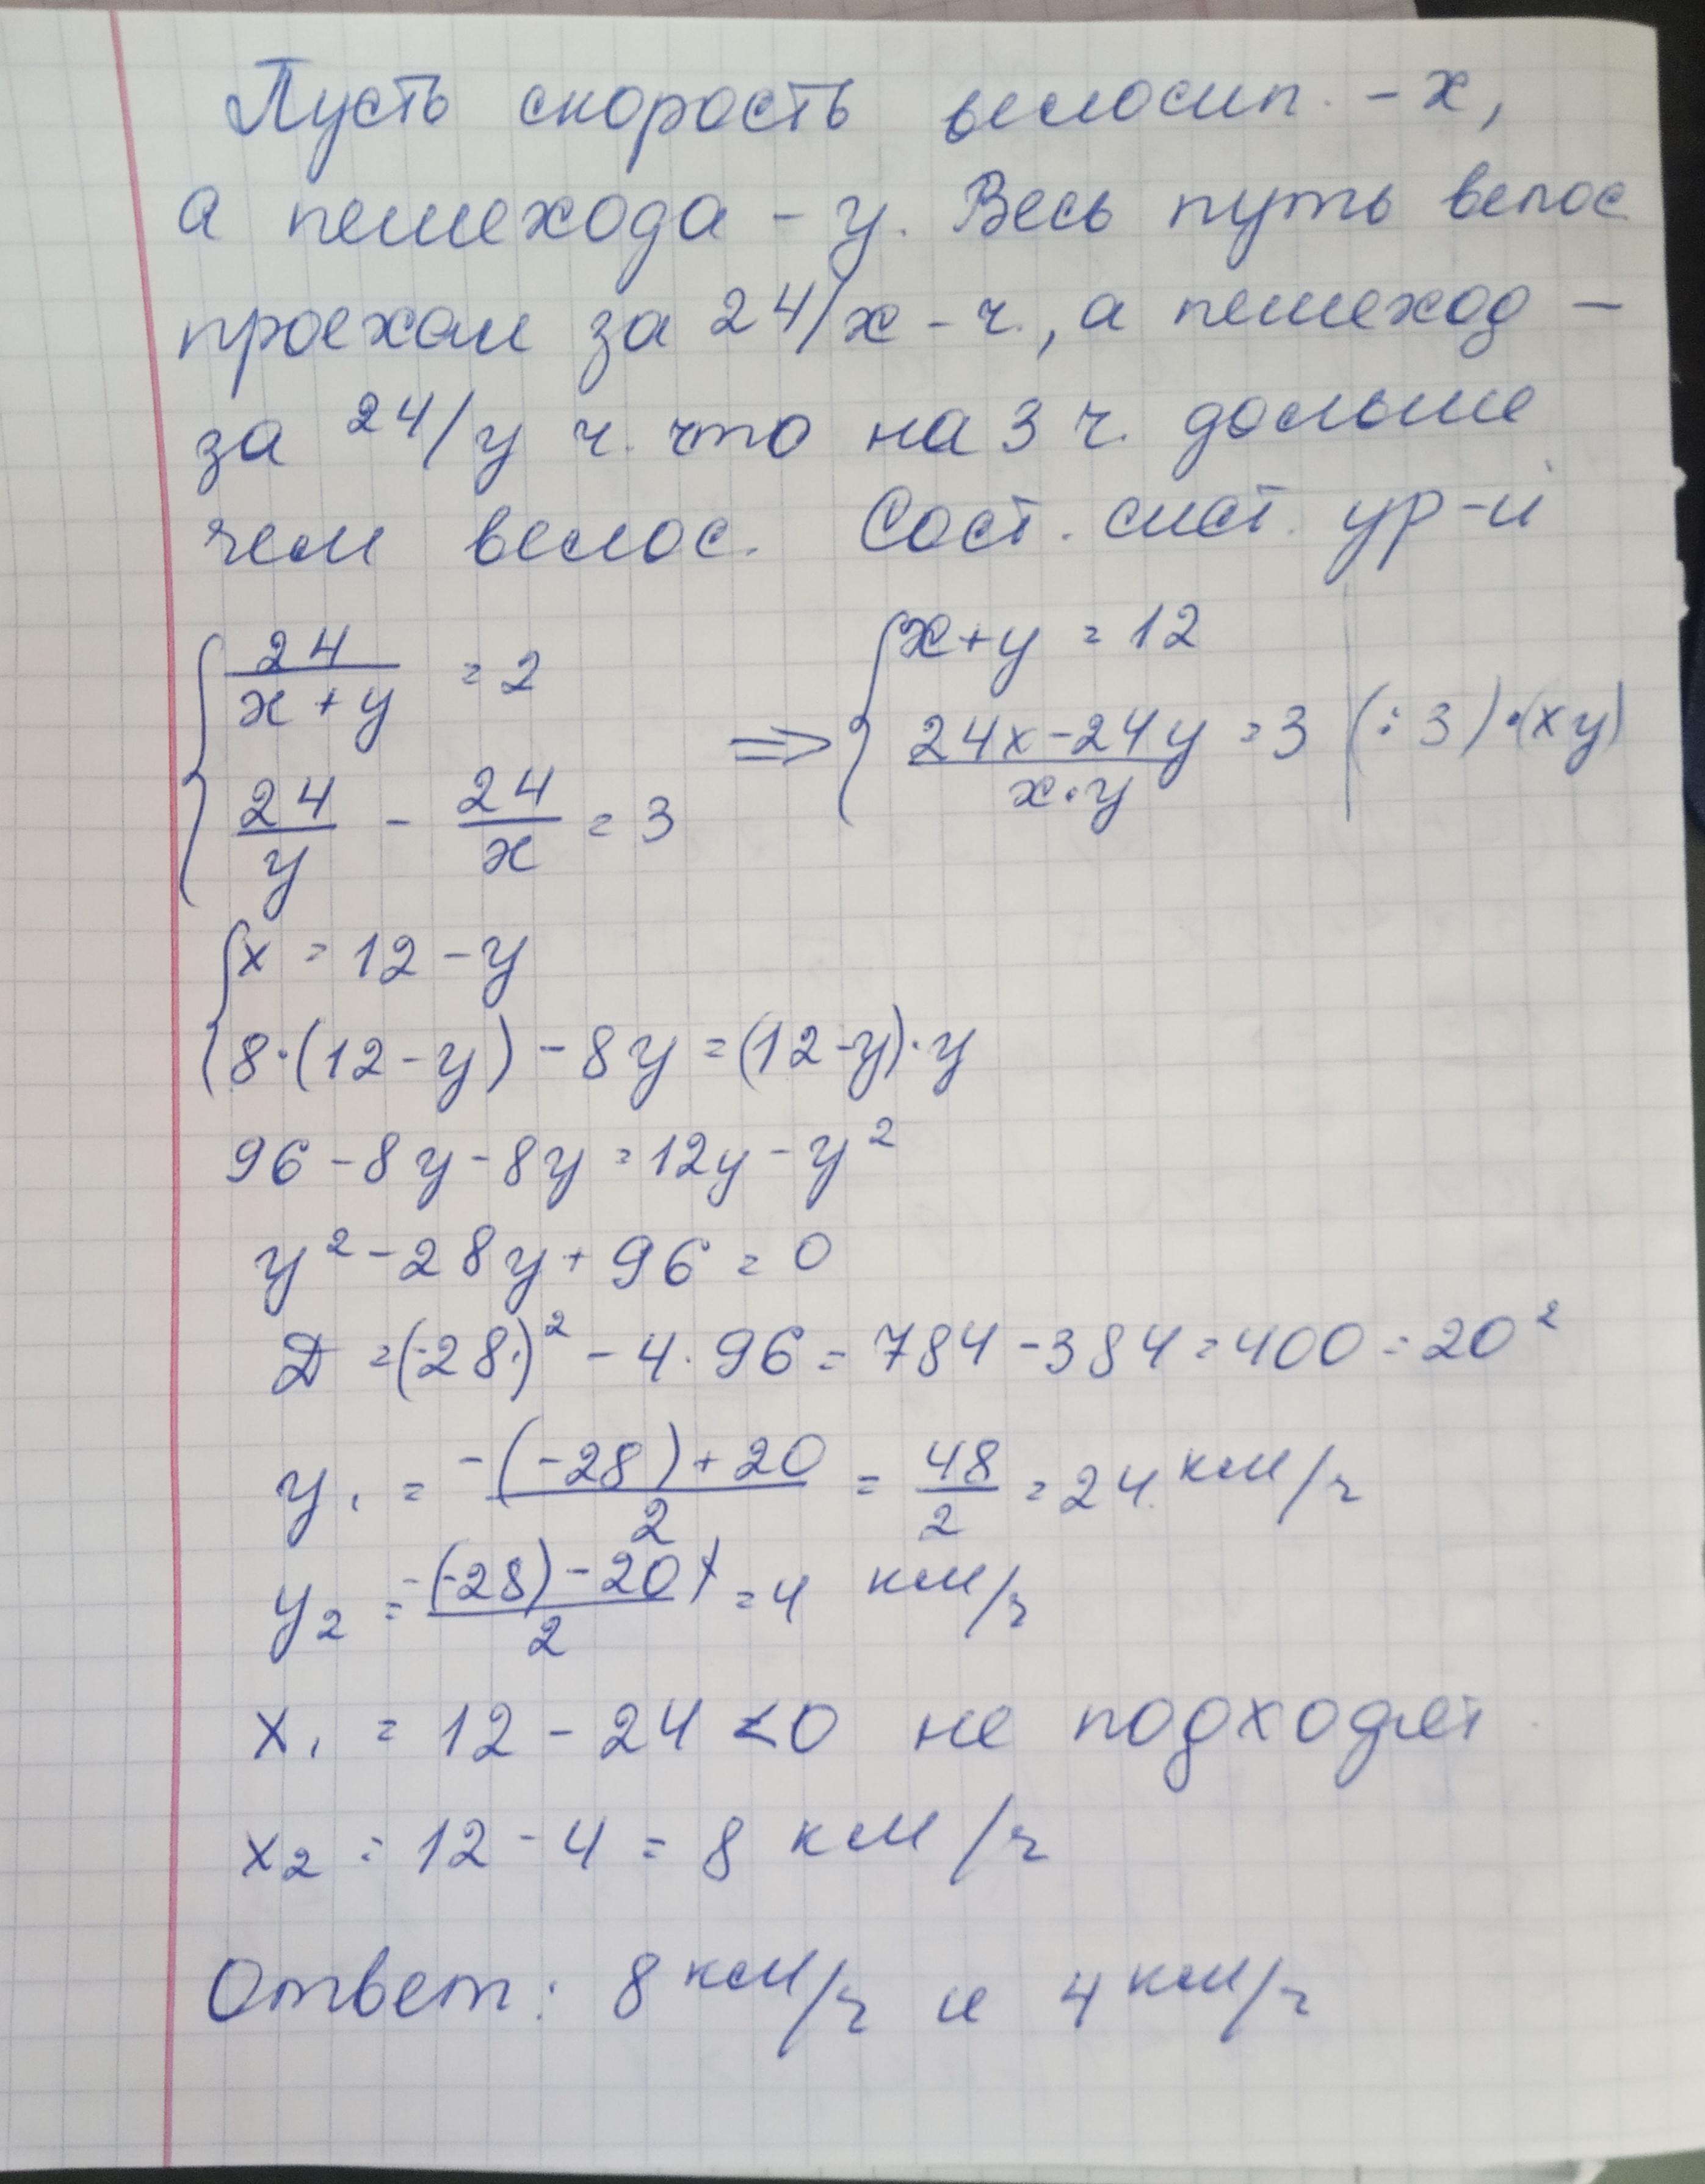 Пусть скорость велосип. - x,
а пешехода - y. Весь путь велос
проехал за 24/x - ч., а пешеход -
за 24/y ч. что на 3 ч. дольше
чем велос. Сост. сист. ур-й
{ 24/(x+y) = 2 => { x+y = 12
{ 24/y - 24/x = 3 { (24x-24y)/(x·y) = 3 | (:3)·(xy)
{ x = 12 - y
{ 8·(12-y) - 8y = (12-y)·y
96 - 8y - 8y = 12y - y²
y² - 28y + 96 = 0
D = (-28)² - 4·96 = 784 - 384 = 400 = 20²
y₁ = (-(-28)+20)/2 = 48/2 = 24 км/ч
y₂ = (-(-28)-20)/2 = 4 км/ч
x₁ = 12 - 24 < 0 не подходит
x₂ = 12 - 4 = 8 км/ч
Ответ: 8 км/ч и 4 км/ч